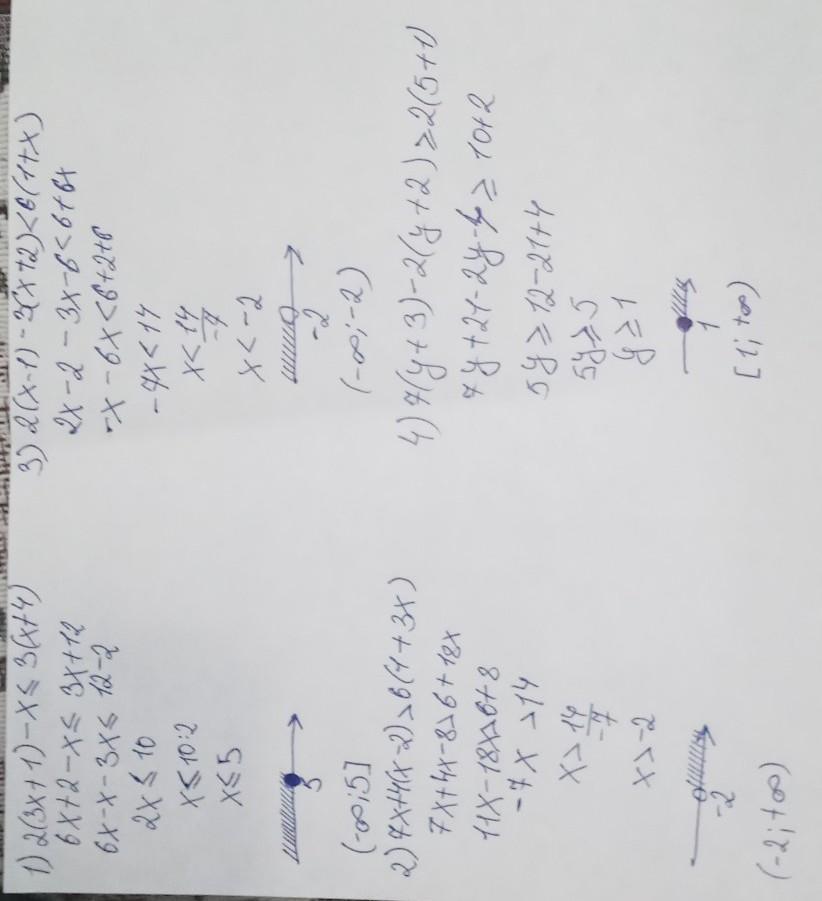 1) 2(3x+1)-x≤3(x+4)
6x+2-x≤3x+12
6x-x-3x≤12-2
2x≤10
x≤10:2
x≤5
5
(-∞;5]
2) 7x+4(x-2)>6(1+3x)
7x+4x-8>6+18x
11x-18x>6+8
-7x>14
x>14/-7
x>-2
-2
(-2;+∞)
3) 2(x-1)-3(x+2)<6(1+x)
2x-2-3x-6<6+6x
-x-6x<6+2+6
-7x<14
x<14/-7
x<-2
-2
(-∞;-2)
4) 7(y+3)-2(y+2)≥2(5+1)
7y+21-2y-4≥10+2
5y≥12-21+4
5y≥5
y≥1
1
[1;+∞)